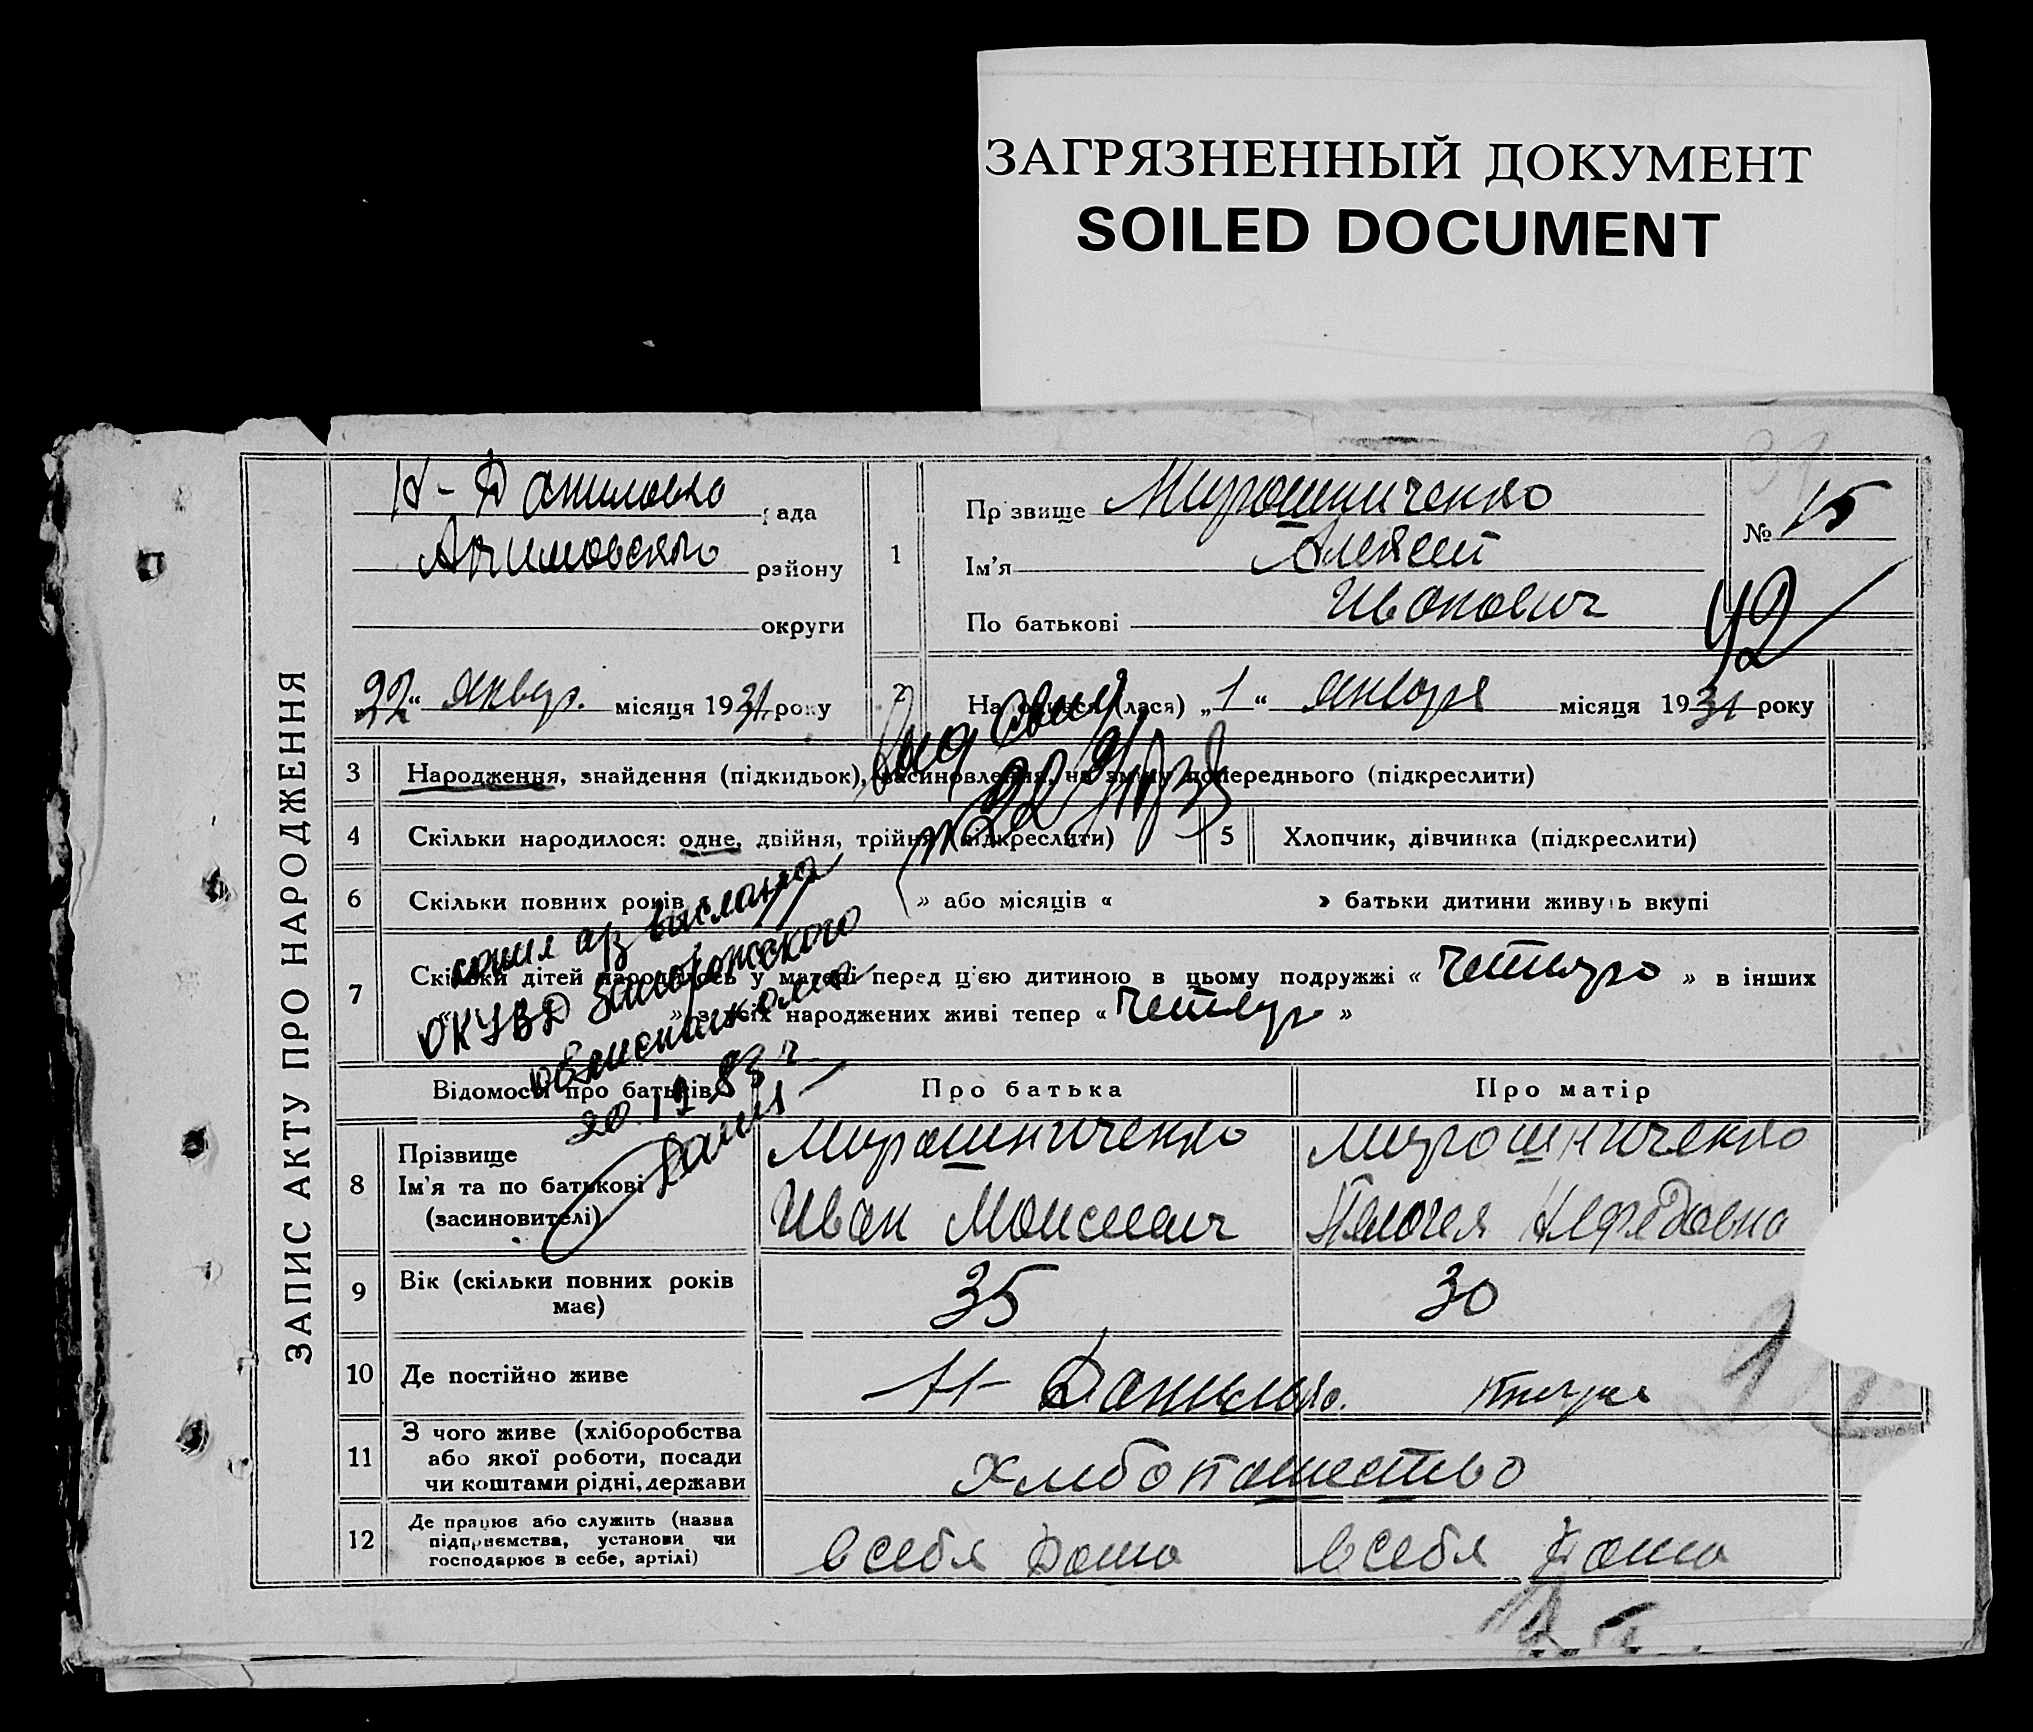 ЗАГРЯЗНЕННЫЙ ДОКУМЕНТ
SOILED DOCUMENT
ЗАПИС АКТУ ПРО НАРОДЖЕННЯ
Н-Даниловка рада
Акимовского району
округи
„22“ январ. місяця 1931 року
1
Прізвище Мирошниченко
Ім'я Алексей
По батькові Иванович
№ 15
42
2
Народився (лася) „1“ января місяця 1931 року
3 Народження, знайдення (підкидьок), засиновлення, на зміну попереднього (підкреслити)
4 Скільки народилося: одне, двійня, трійня (підкреслити)
5 Хлопчик, дівчинка (підкреслити)
6 Скільки повних років » або місяців « » батьки дитини живуть вкупі
7 Скільки дітей народилось у матері перед цією дитиною в цьому подружжі « Четверо » в інших
« » з усіх народжених живі тепер « Четверо »
копия а/з выслана
ОКУВД Запорожского
облисполкома
20.12.83 г
Відомості про батьків
Про батька
Про матір
8 Прізвище
Ім'я та по батькові
(засиновителі)
Мирошниченко
Иван Моисеевич
Мирошниченко
Пелагея Нефедовна
9 Вік (скільки повних років
має)
35
30
10 Де постійно живе
Н-Данилов.
11 З чого живе (хліборобства
або якої роботи, посади
чи коштами рідні, держави
Хлебопашество
12 Де працює або служить (назва
підприємства, установи чи
господарює в себе, артілі)
в себя дома
в себя дома